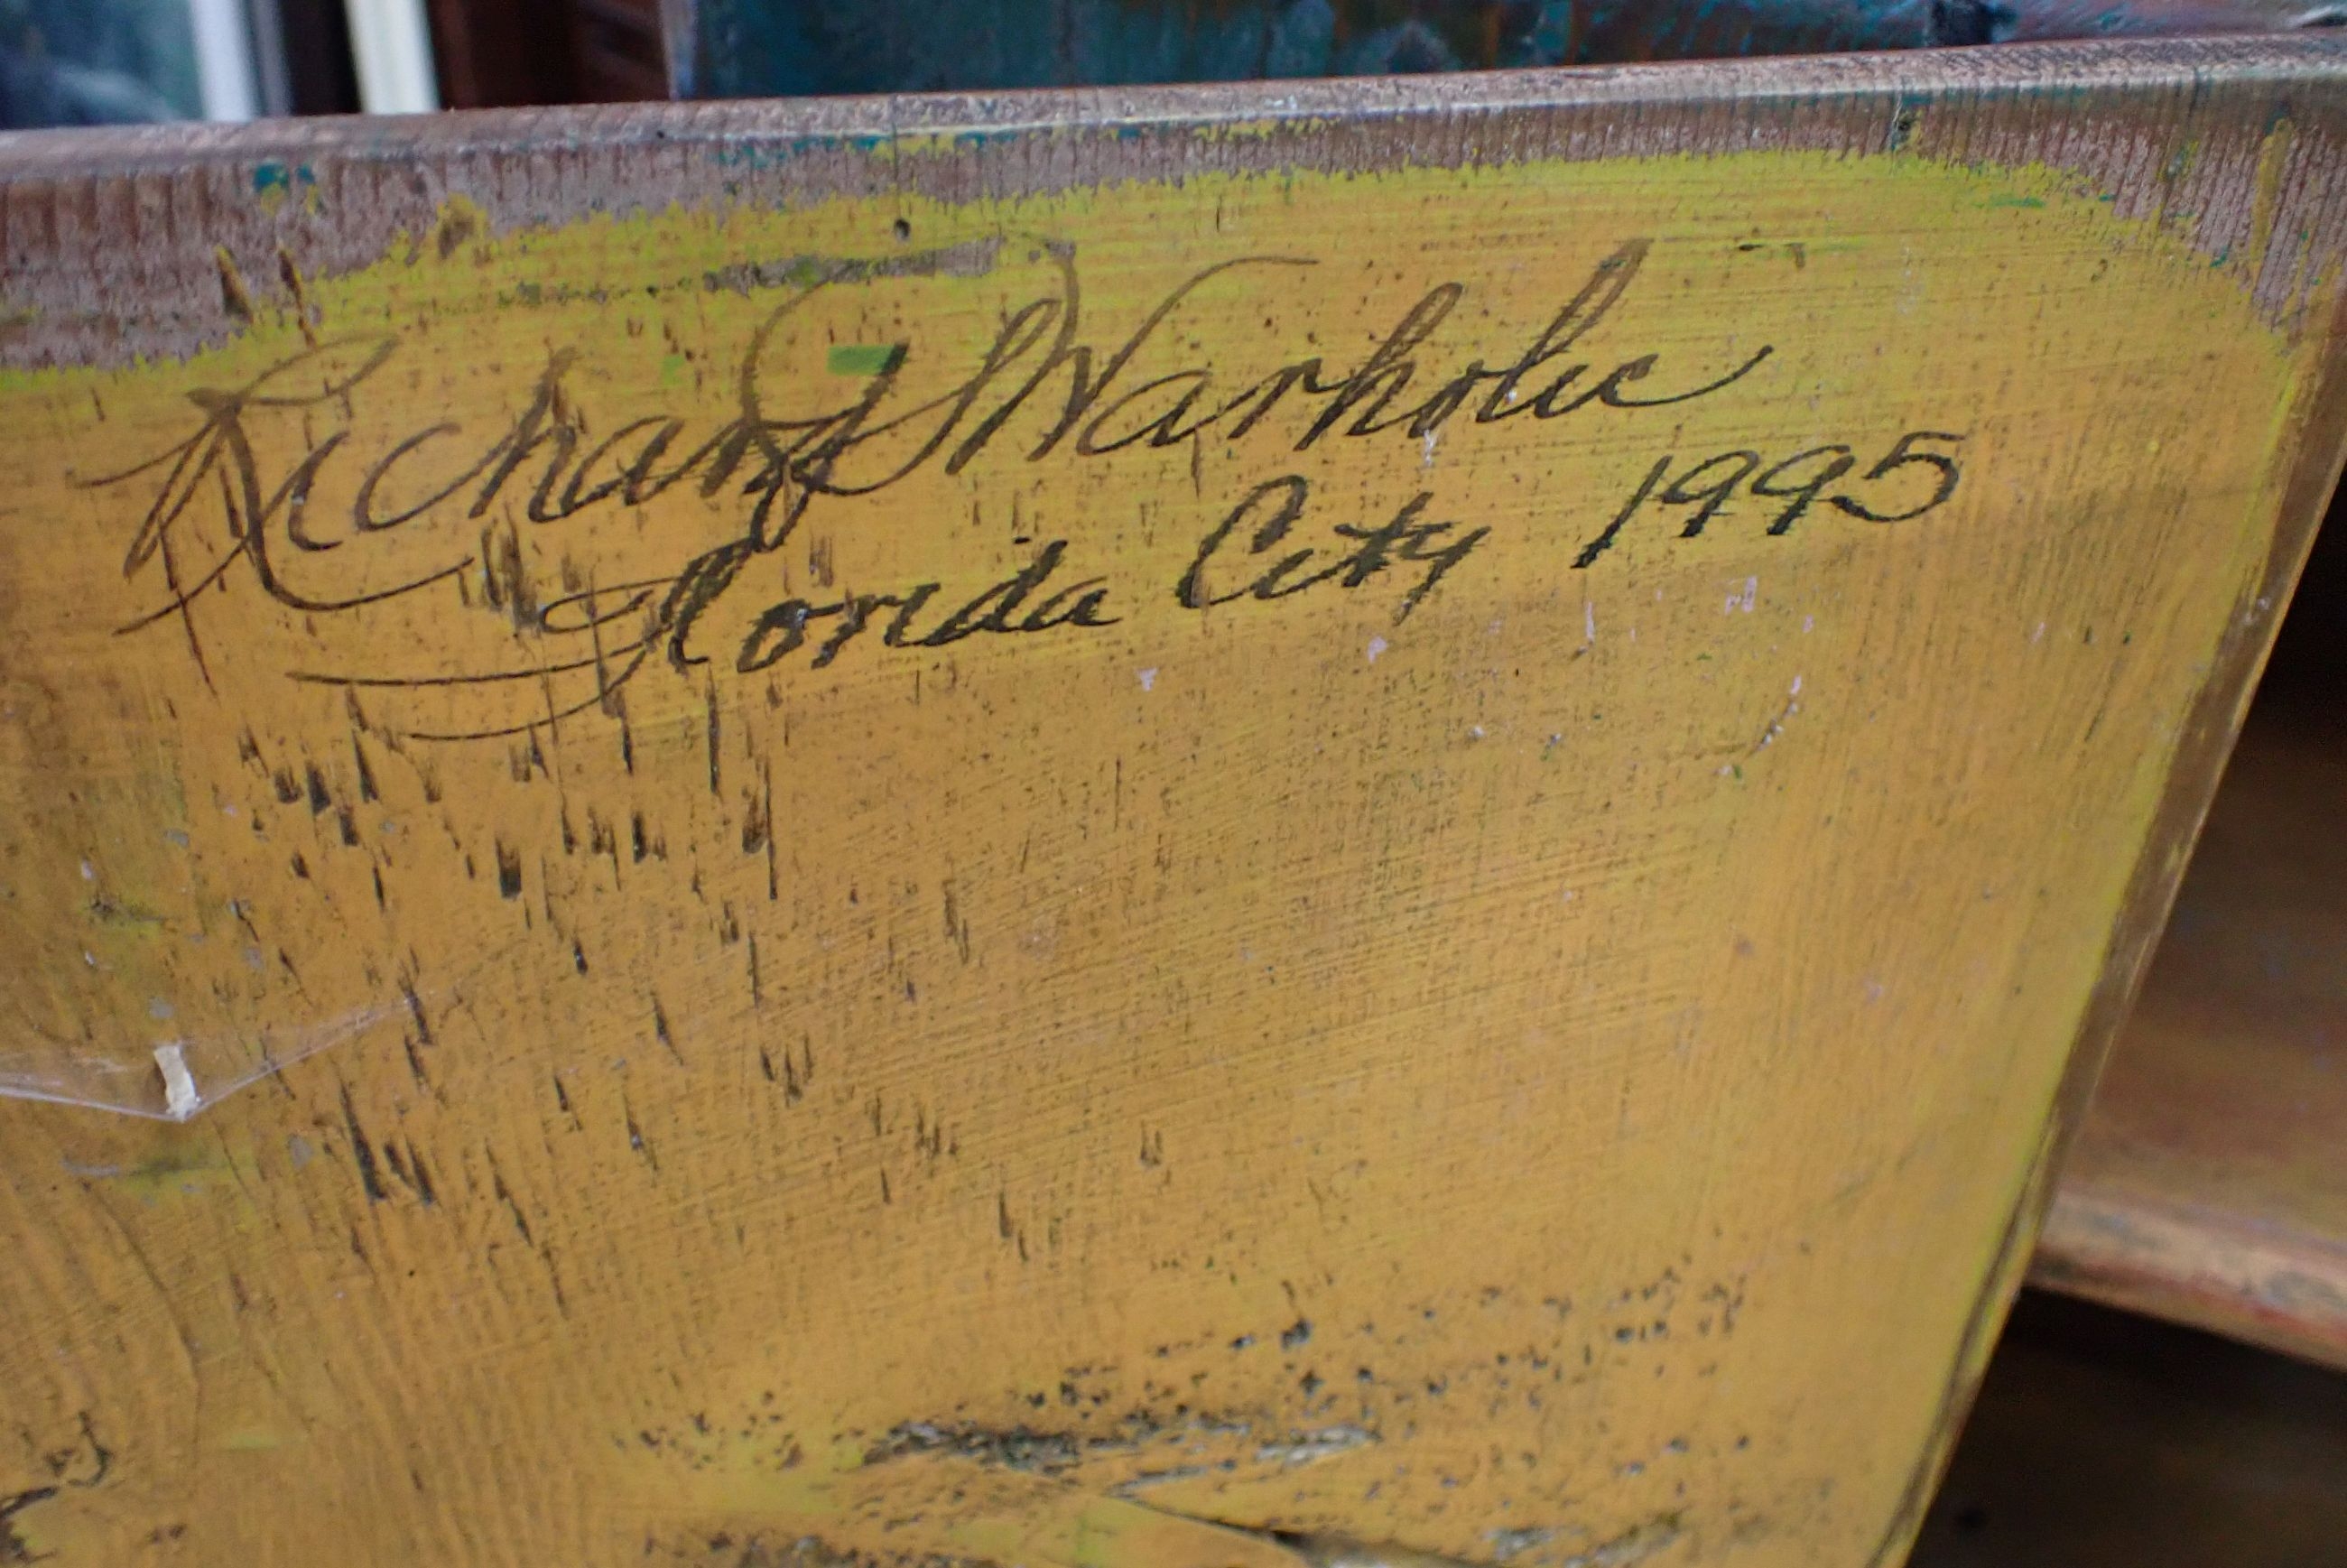 Richard Warholic
Florida City 1995